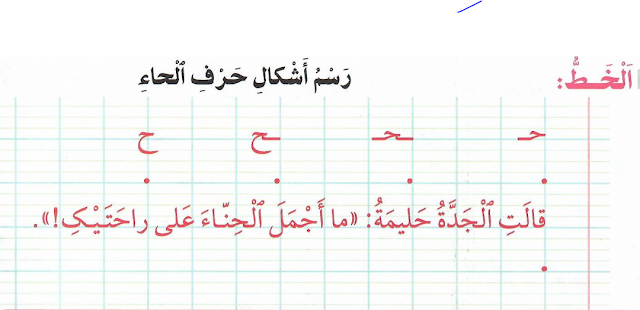 اَلْخَــطُّ:
رَسْمُ أَشْكالِ حَرْفِ ٱلْحاءِ
حـ ـحـ ـح ح
قالَتِ ٱلْجَدَّةُ حَليمَةُ: «ما أَجْمَلَ ٱلْحِنّـاءَ عَلى راحَتَيْـكِ!».